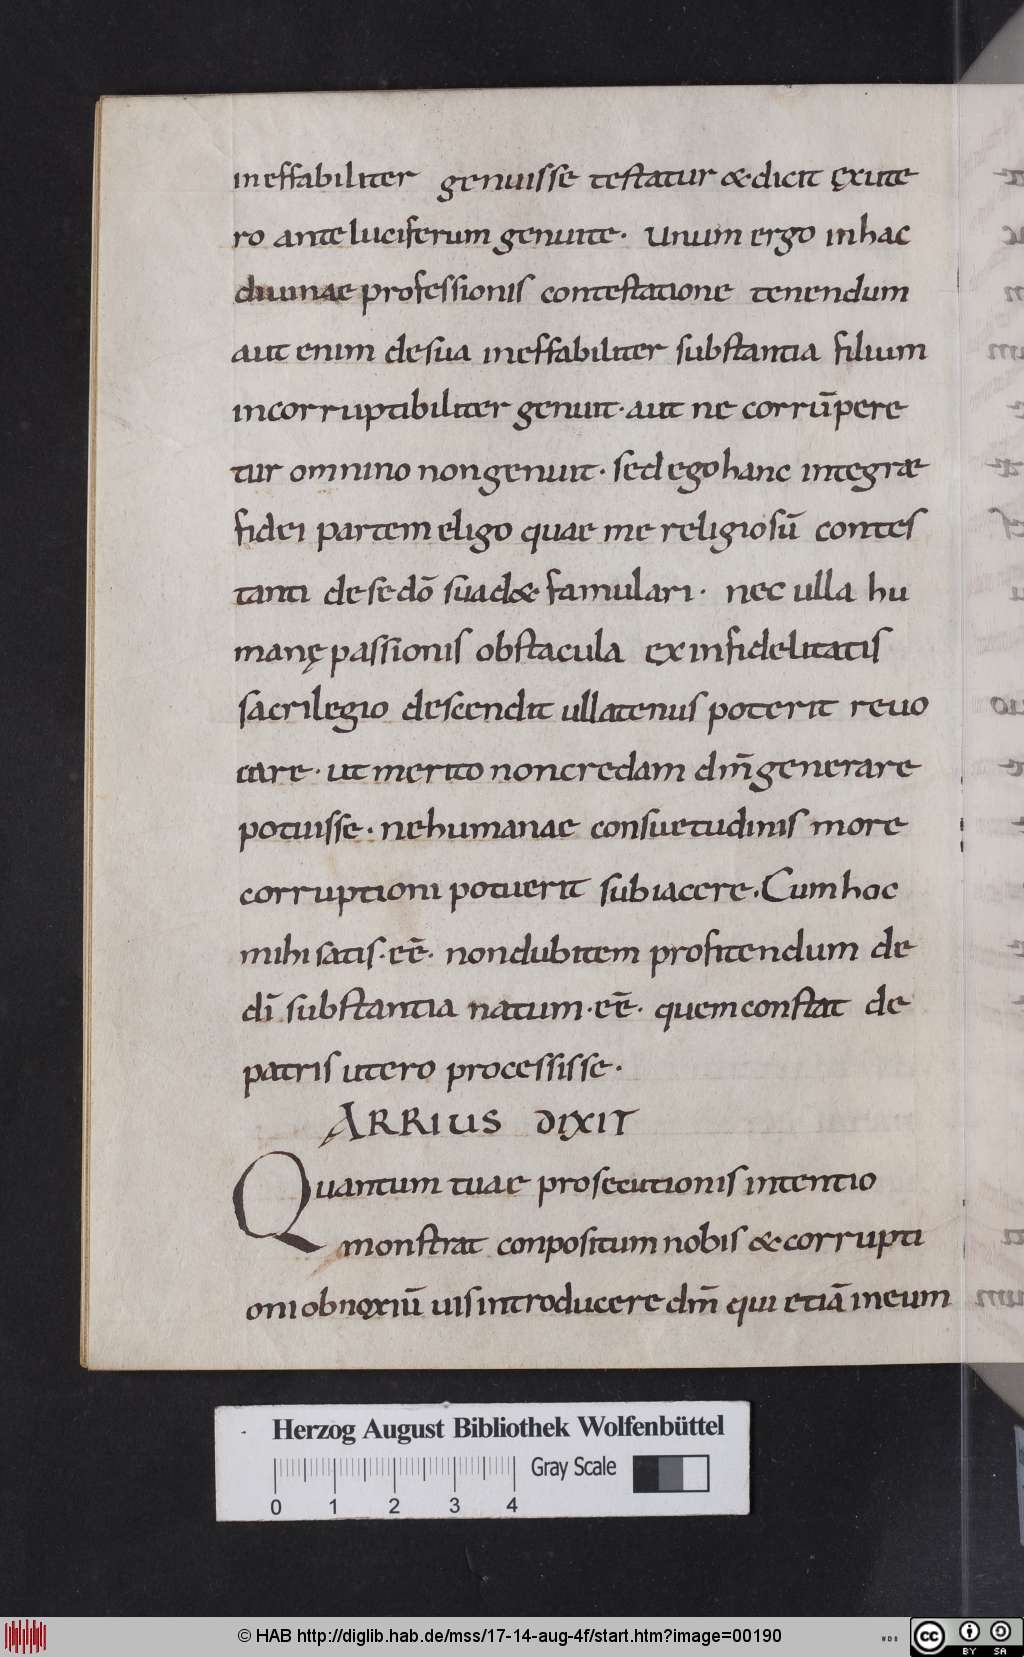 ineffabiliter genuisse testatur & dicit ęxute
ro ante luciferum genuite. Unum ergo in hac
diuinae professionis contestatione tenendum
aut enim de sua ineffabiliter substantia filium
incorruptibiliter genuit· aut ne corrūpere
tur omnino non genuit· sed ego hanc integrae
fidei partem eligo quae me religiosū contes
tanti de se dō suad& famulari· nec ulla hu
manę passionis obstacula ex infidelitatis
sacrilegio descendit ullatenus poterit reuo
care· ut merito non credam dm̄ generare
potuisse· ne humanae consuetudinis more
corruptioni potuerit subiacere. Cum hoc
mihi satis· eē· non dubitem profitendum de
dī substantia natum· eē· quem constat de
patris utero processisse·
ARRIUS DIXIT
Quantum tuae prosecutionis intentio
monstrat conpositum nobis & corrupti
oni obnoxiū uis introducere dm̄ qui etiā in eum
Herzog August Bibliothek Wolfenbüttel
Gray Scale
0 1 2 3 4
© HAB http://diglib.hab.de/mss/17-14-aug-4f/start.htm?image=00190
WDB
cc BY SA